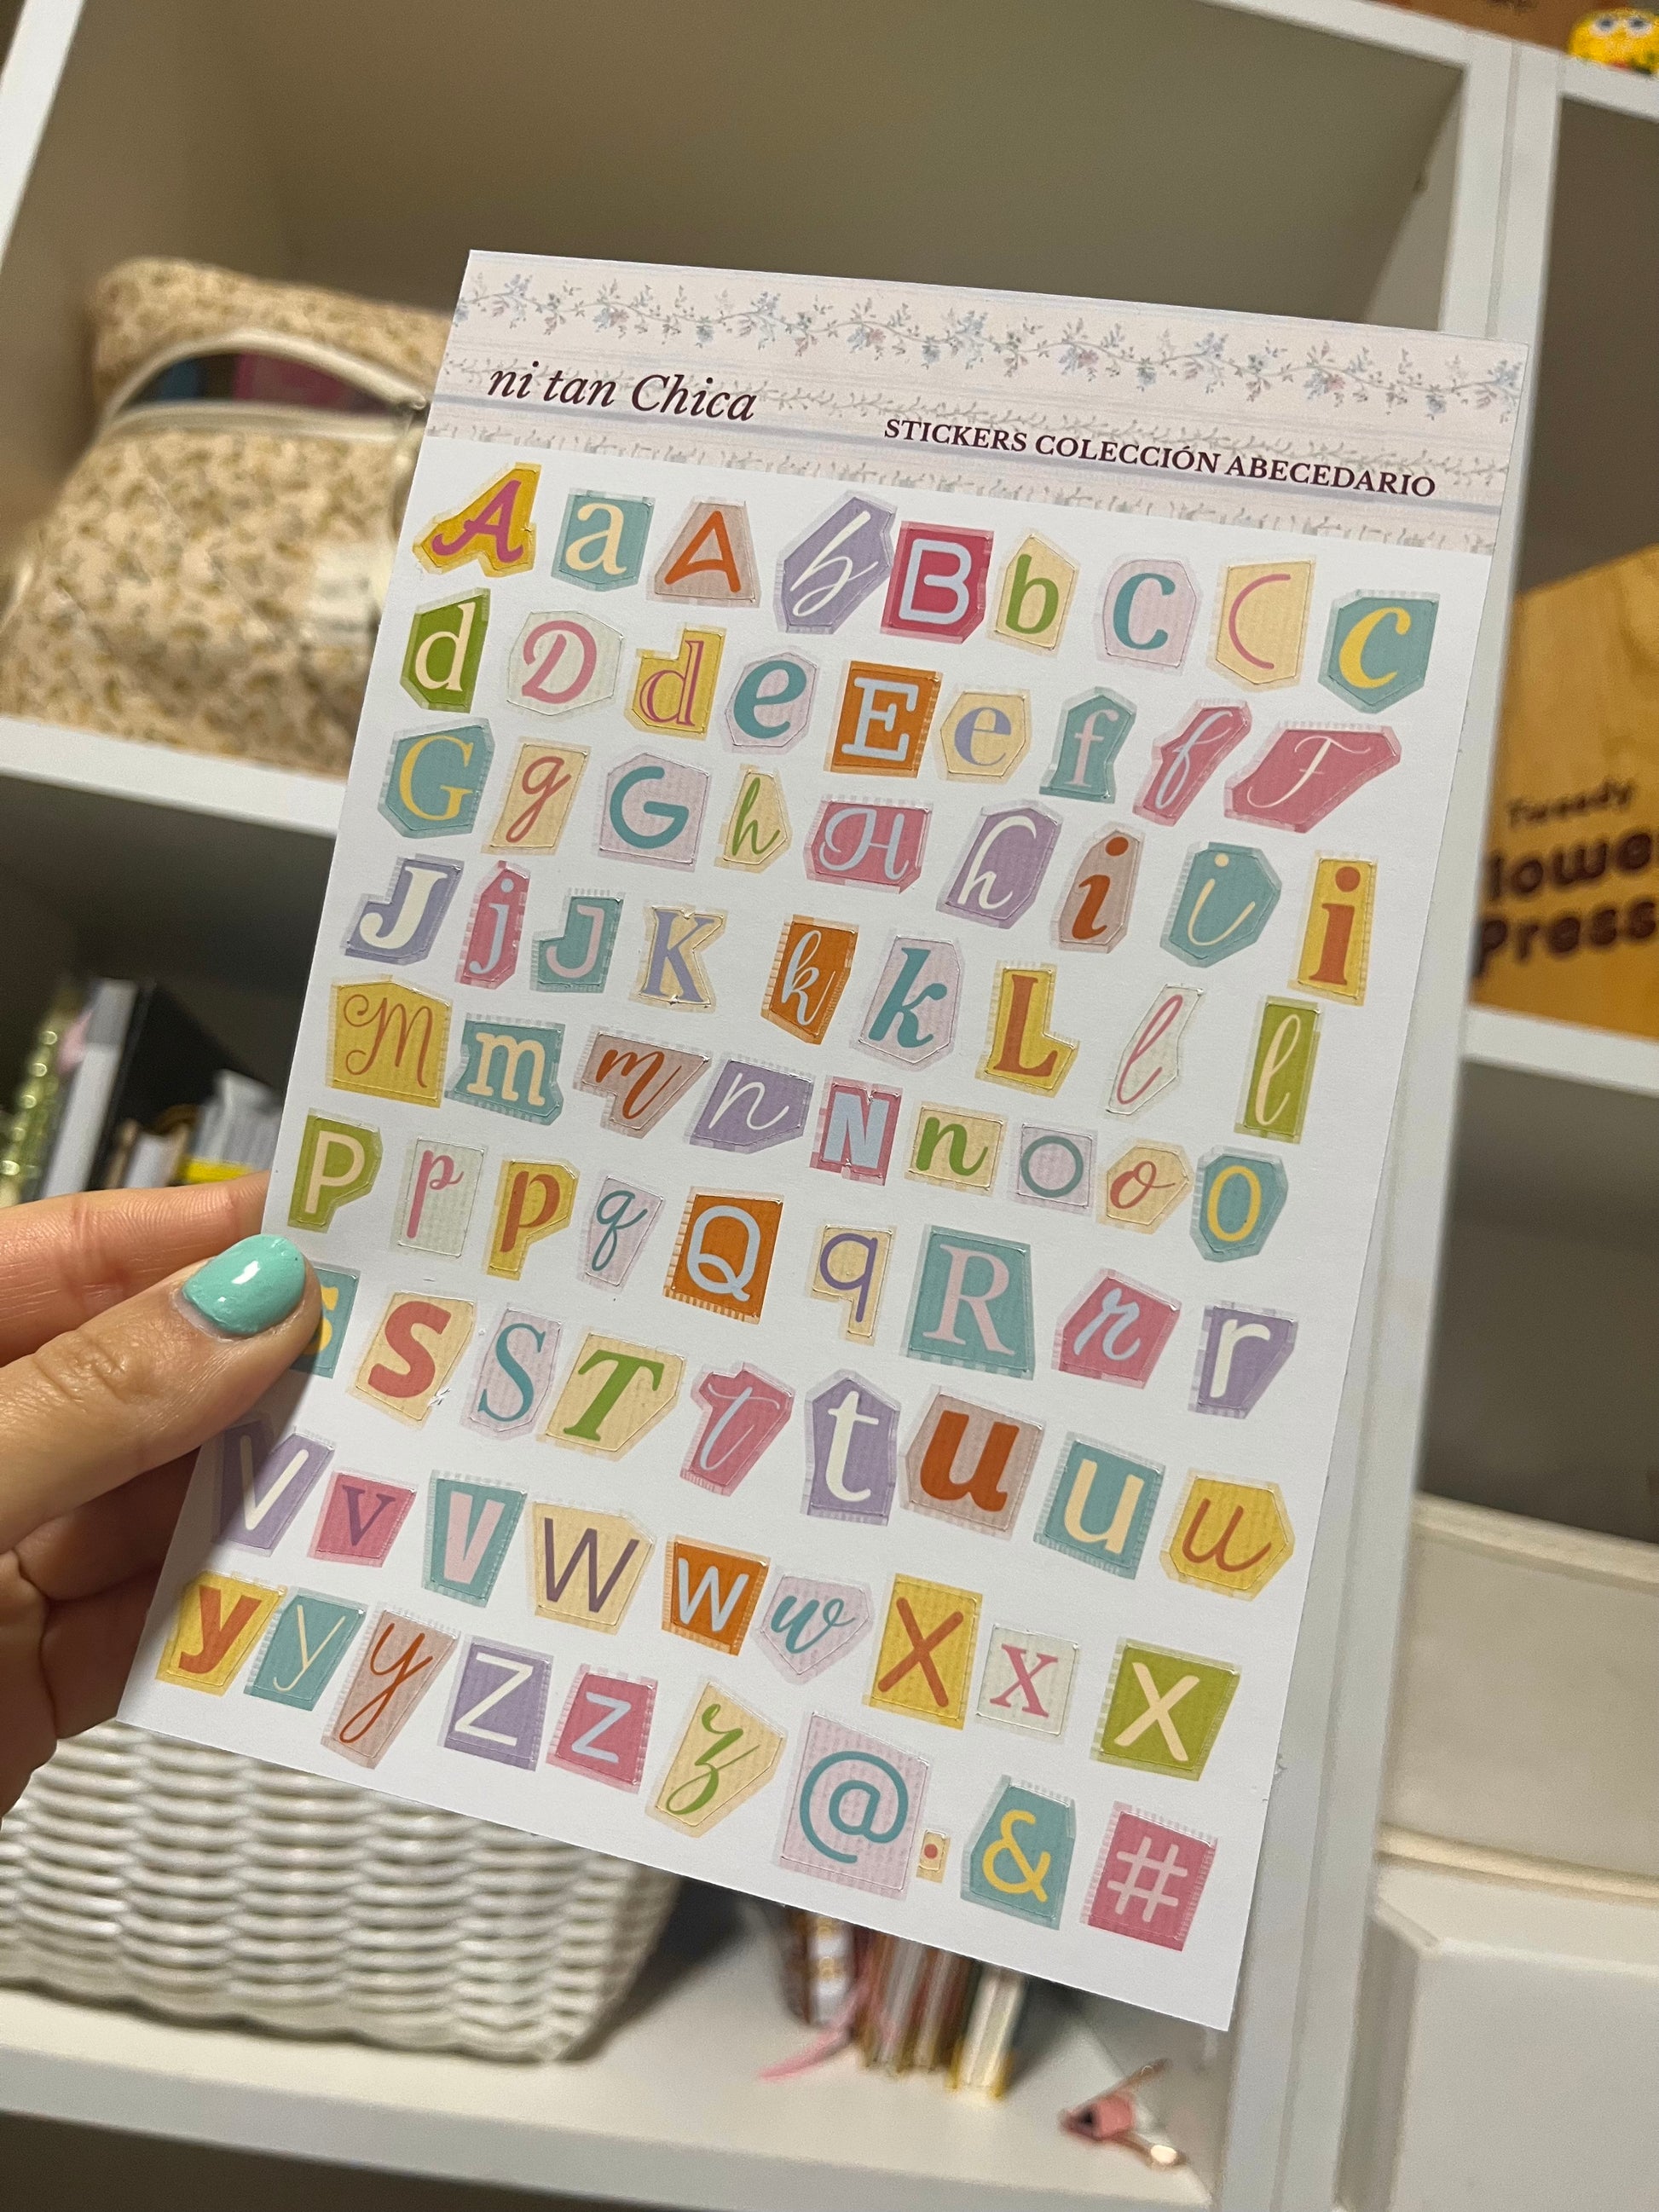 ni tan Chica
STICKERS COLECCIÓN ABECEDARIO
A a A b B b C C C
d D d e E e f f F
G g G h H h i i i
J j J K k k L l l
M m m n N n o o o
P p p q Q q R r r
s S S T t t u u u
V v V W w w X x X
y y y Z z z @ . & #
Tweedy
Flower
Press